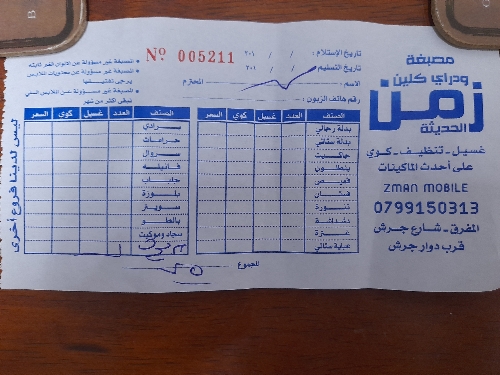 مصبغة
ودراي كلين
زمن
الحديثة
غسيل - تنظيف - كوي
على أحدث الماكينات
ZMAN MOBILE
0799150313
المفرق - شارع جرش
قرب دوار جرش
تاريخ الإستلام: / / ٢٠١
تاريخ التسليم: / / ٢٠١
الاسم: المحترم
رقم هاتف الزبون:
Nº 005211
المصبغة غير مسؤولة عن الألوان الغير ثابتة
المصبغة غير مسؤولة عن محتويات الملابس
يرجى تفقدها
المصبغة غير مسؤولة عن الملابس التي
تبقى أكثر من شهر
الصنف العدد غسيل كوي السعر
بدلة رجالي
بدلة ستاتي
جاكيت
بنطلون
قميص
فستان
تنورة
دشداشة
عباية ستاتي
الصنف العدد غسيل كوي السعر
حرامات
سروال
فانيله
جلباب
بلوزة
سويتر
بالطو
سجاد وموكيت
المجموع
٢٥
ليس لدينا فروع أخرى